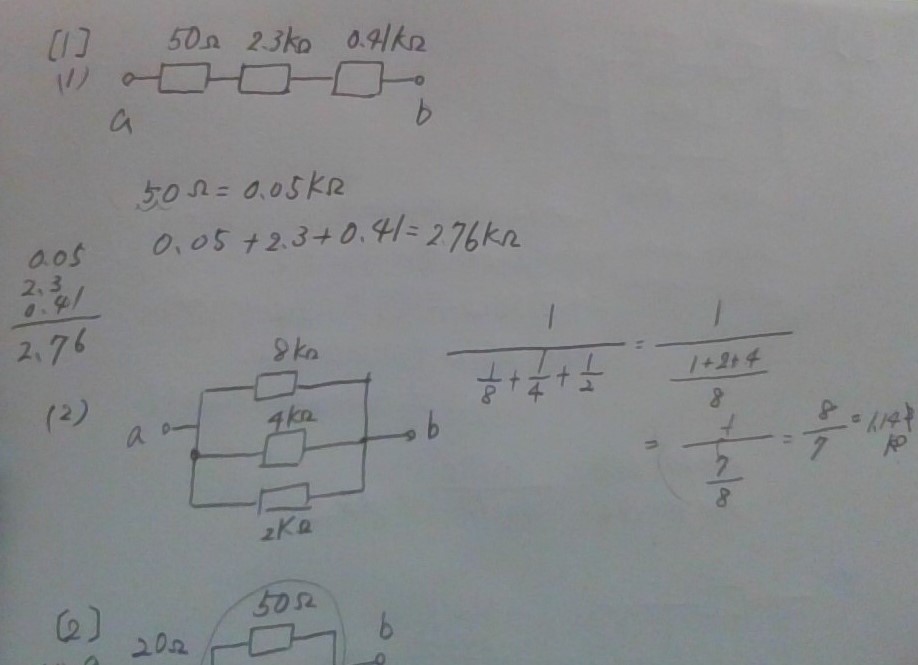 [1]
(1) 50Ω 2.3kΩ 0.41kΩ
a b
50Ω = 0.05KΩ
0.05 + 2.3 + 0.41 = 2.76KΩ
0.05
2.3
0.41
2.76
(2) 8kΩ
4kΩ
a b
2KΩ
1 / (1/8 + 1/4 + 1/2) = 1 / ((1+2+4)/8)
= 1 / (7/8) = 8/7 =
[2] 50Ω
20Ω b
a